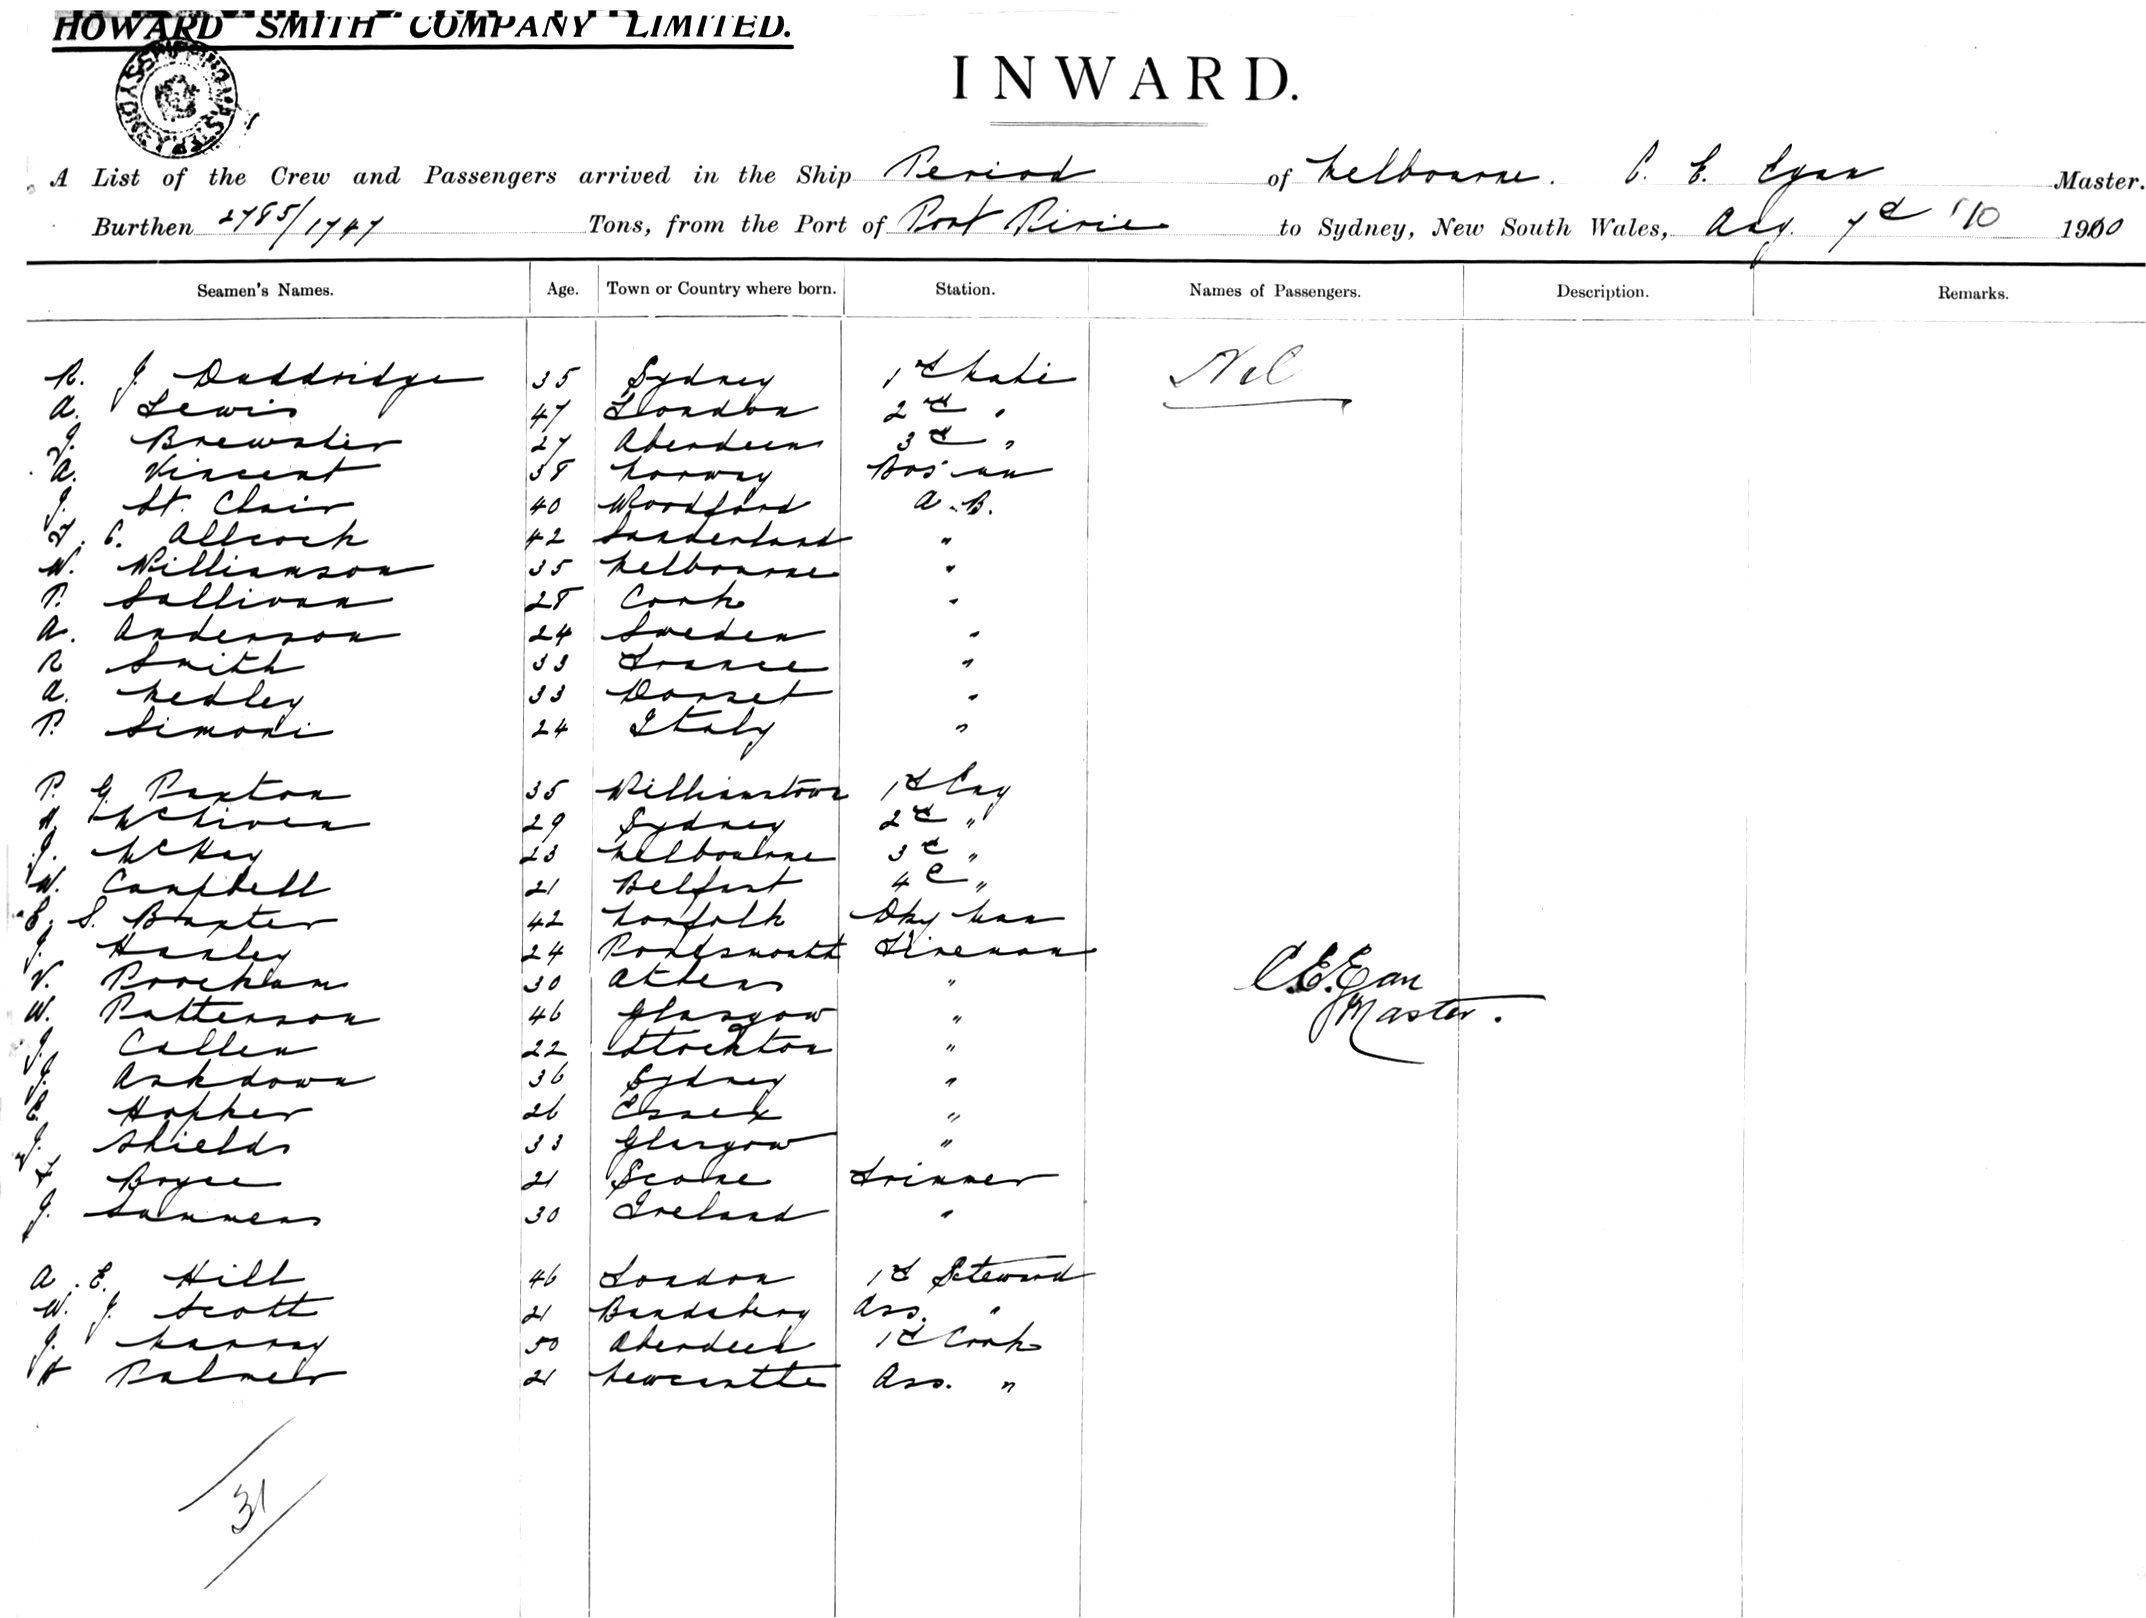 HOWARD SMITH COMPANY LIMITED.
INWARD.
A List of the Crew and Passengers arrived in the Ship Period of Melbourne. C. E. Egan Master.
Burthen 2785/1747 Tons, from the Port of Port Pirie to Sydney, New South Wales, Aug. 7th '10 1910
Seamen's Names. Age. Town or Country where born. Station. Names of Passengers. Description. Remarks.
R. J. Duddridge 35 Sydney 1st Mate Nil
A. Lewis 47 London 2nd "
J. Brewster 27 Aberdeen 3rd "
A. Vincent 38 Norway Bos'un
J. St. Clair 40 Woodford A.B.
C. Allcock 42 Sunderland "
W. Williamson 35 Melbourne "
P. Sullivan 28 Cork "
A. Anderson 24 Sweden "
R Smith 33 France "
A. Medley 33 Dorset "
P. Simoni 24 Italy "
P. G. Paxton 35 Williamstown 1st Eng
A. McNiven 29 Sydney 2nd "
J. McKay 23 Melbourne 3rd "
W. Campbell 21 Belfast 4th "
E. S. Baxter 42 Norfolk Dky Man
J. Hanley 24 Portsmouth Fireman
V. 30 Athens "
W. Patterson 46 Glasgow "
J. Cullen 22 Stockton "
J. Ashdown 36 Sydney "
E. Hopher 26 Essex "
J. Shields 33 Glasgow "
F Boyce 21 Scone Trimmer
J. Summers 30 Ireland "
C.E. Egan
Master.
A. E. Hill 46 London 1st Steward
W. J. Scott 21 Bundaberg Ass. "
J. Murray 50 Aberdeen 1st Cook
H Palmer 21 Newcastle Ass. "
31